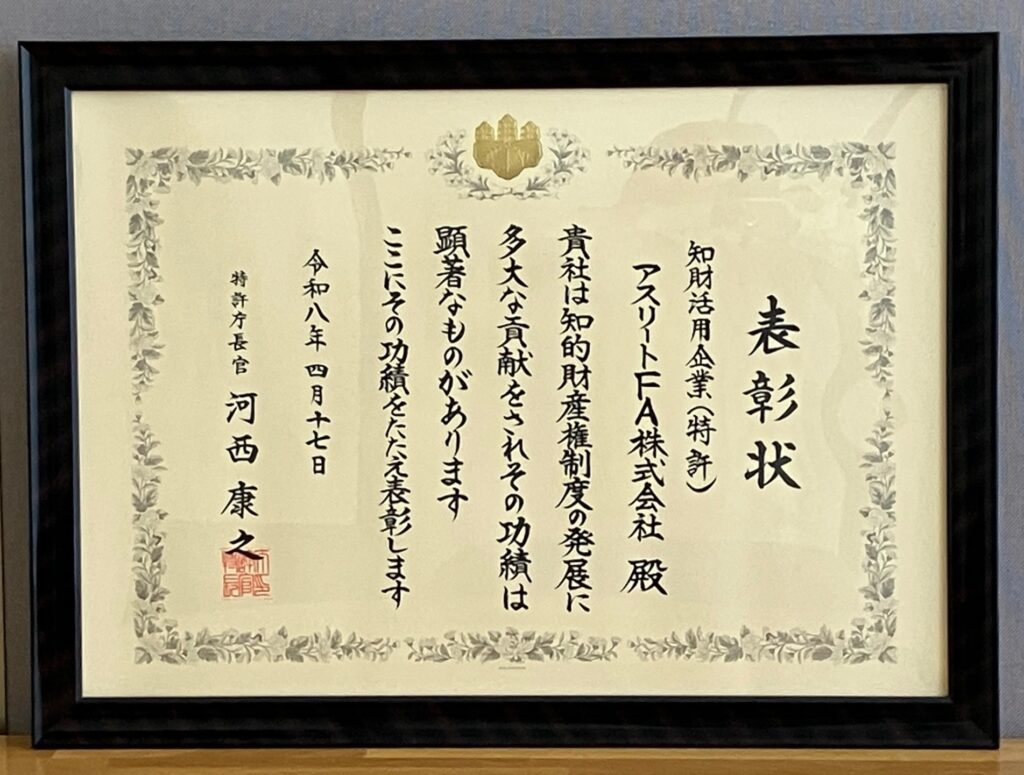 表彰状
知財活用企業(特許)
アスリートFA株式会社 殿
貴社は知的財産権制度の発展に
多大な貢献をされその功績は
顕著なものがあります
ここにその功績をたたえ表彰します
令和八年四月十七日
特許庁長官 河西康之